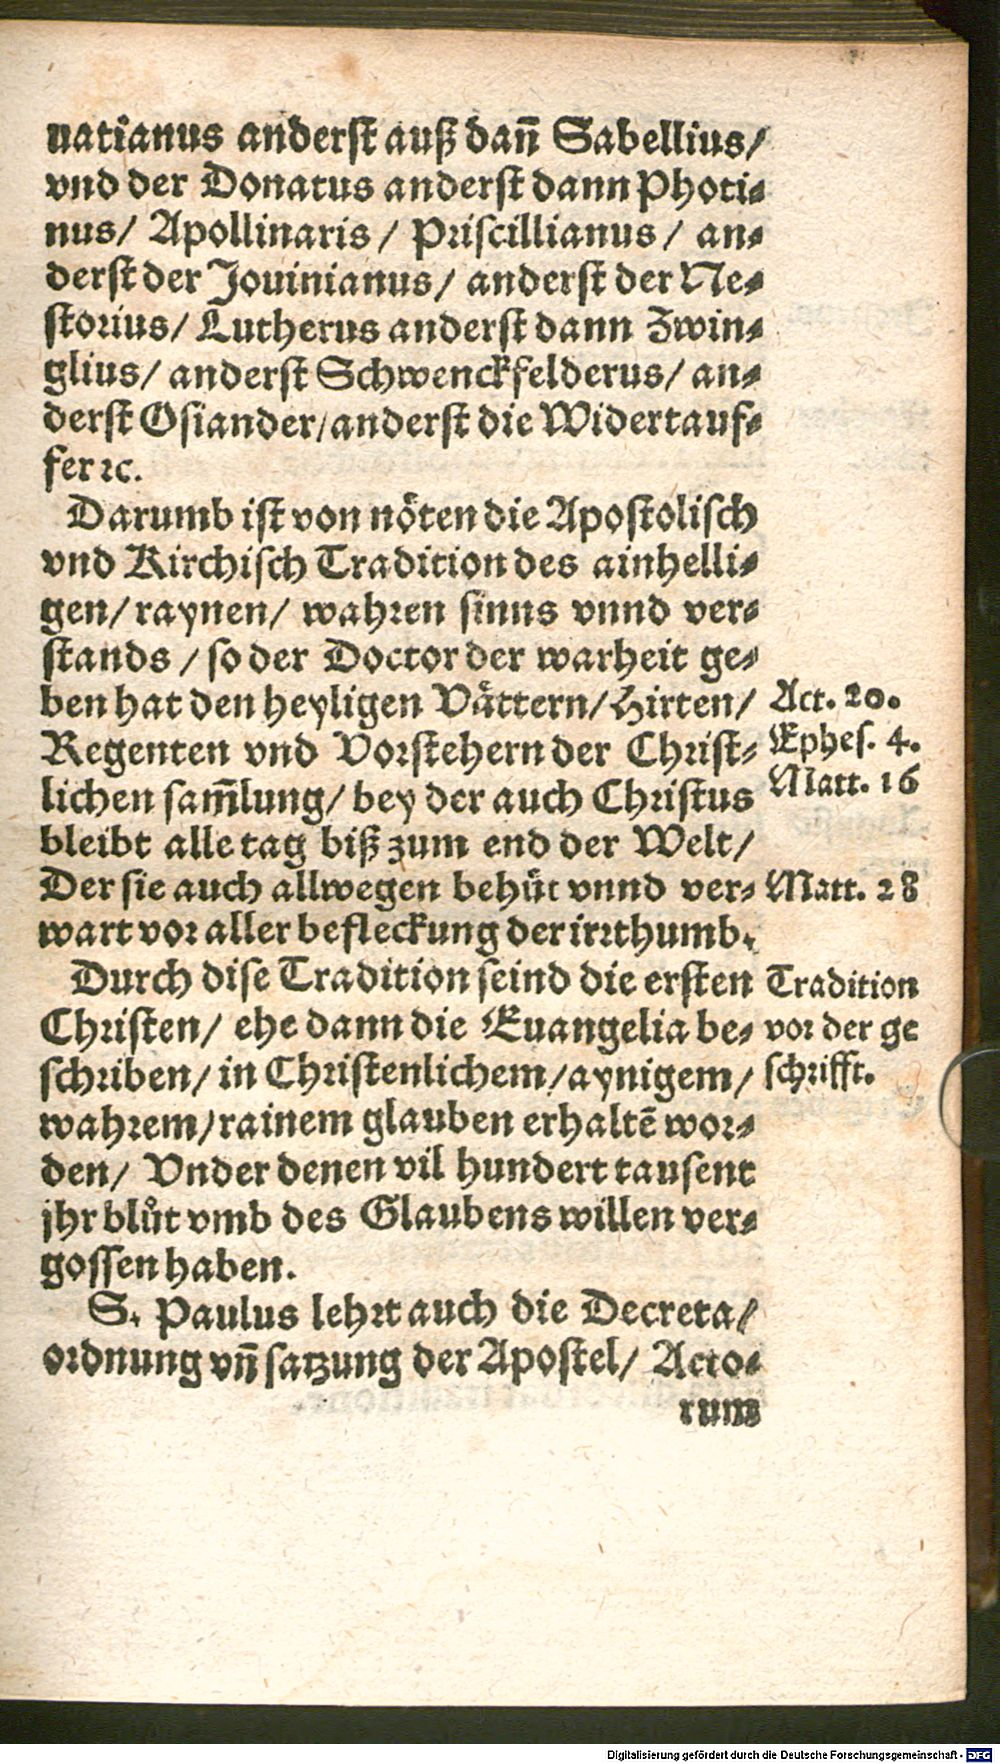 uatianus anderst auß dañ Sabellius/
vnd der Donatus anderst dann Photi⸗
nus/ Apollinaris / Priscillianus / an⸗
derst der Jouinianus/ anderst der Ne⸗
storius/ Lutherus anderst dann Zwin⸗
glius/ anderst Schwenckfelderus/ an⸗
derst Osiander/ anderst die Widertauf⸗
fer ꝛc.
Darumb ist von nöten die Apostolisch
vnd Kirchisch Tradition des ainhelli⸗
gen/ raynen/ wahren sinns vnnd ver⸗
stands / so der Doctor der warheit ge⸗
ben hat den heyligen Vättern/ Hirten/
Regenten vnd Vorstehern der Christ⸗
lichen sam̃lung/ bey der auch Christus
bleibt alle tag biß zum end der Welt/
Der sie auch allwegen behüt vnnd ver⸗
wart vor aller befleckung der irrthumb.
Act. 20.
Ephes. 4.
Matt. 16
Matt. 28
Durch dise Tradition seind die ersten
Christen/ ehe dann die Euangelia be⸗
schriben/ in Christenlichem/ aynigem/
wahrem/ rainem glauben erhaltẽ wor⸗
den/ Vnder denen vil hundert tausent
jhr blůt vmb des Glaubens willen ver⸗
gossen haben.
Tradition
vor der ge
schrifft.
S. Paulus lehrt auch die Decreta/
ordnung vñ satzung der Apostel/ Acto⸗
rum
Digitalisierung gefördert durch die Deutsche Forschungsgemeinschaft - DFG